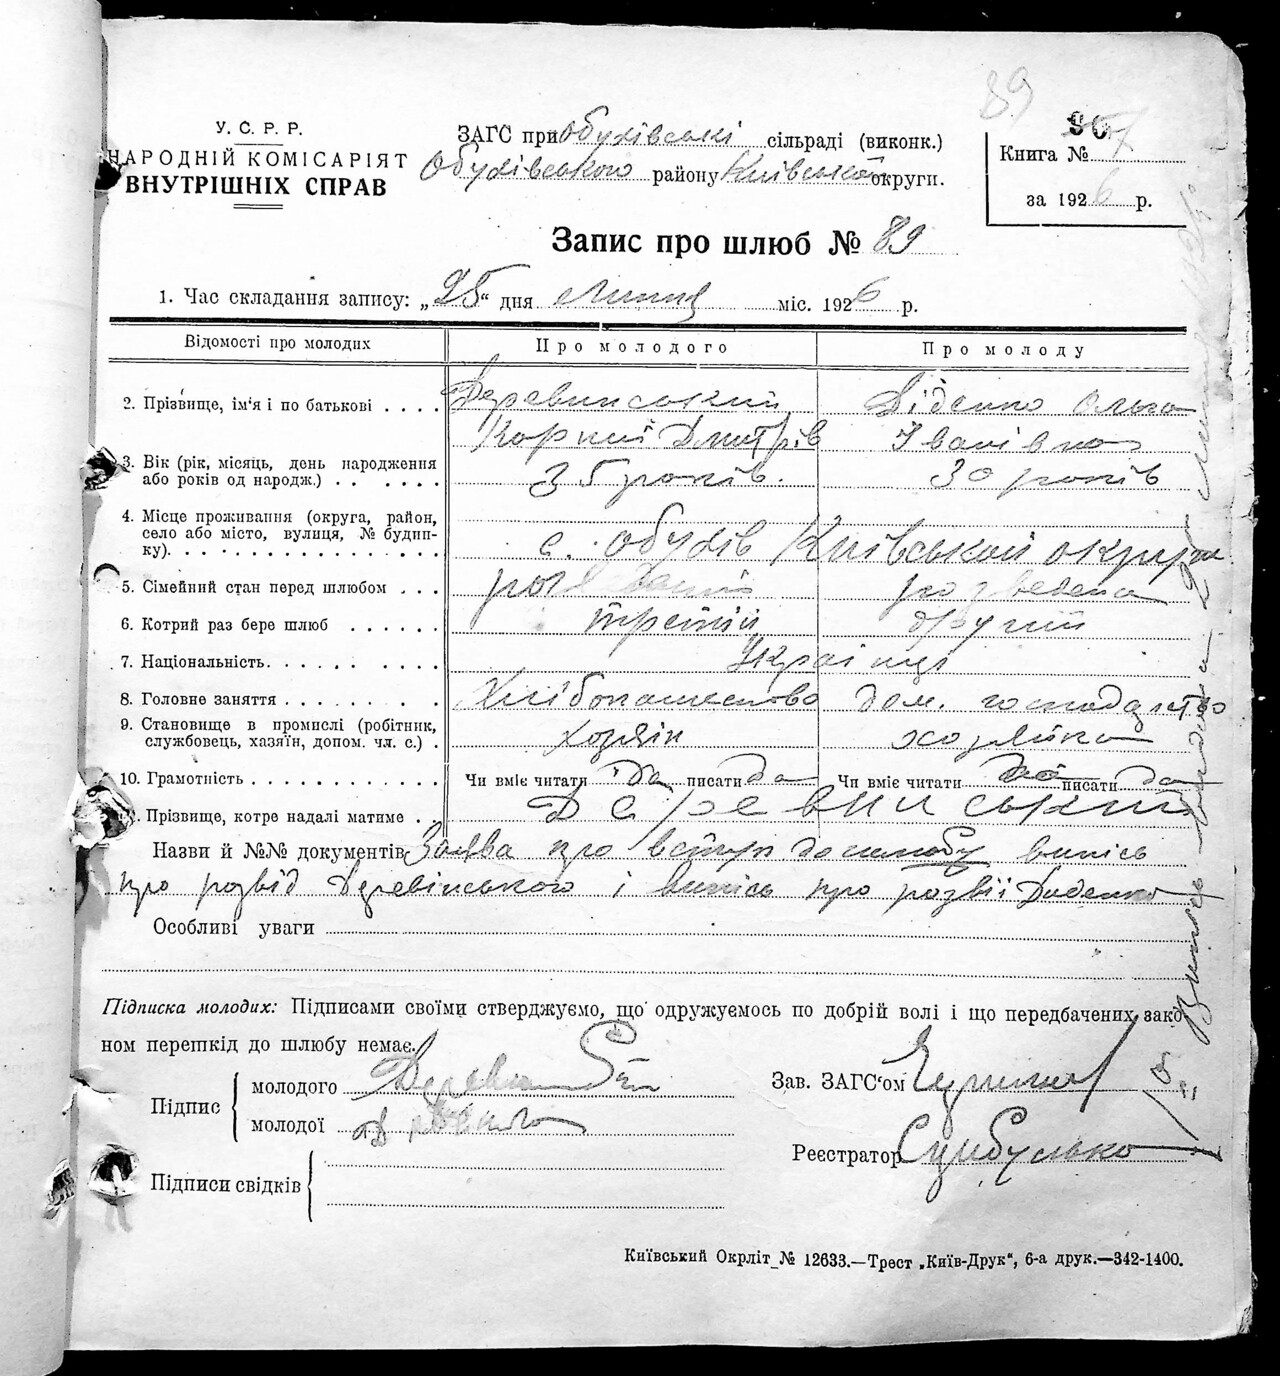 89
У. С. Р. Р.
НАРОДНІЙ КОМІСАРІЯТ
ВНУТРІШНІХ СПРАВ
ЗАГС при Обухівські сільраді (виконк.)
Обухівського району Київської округи.
Книга № 7
за 1926 р.
Запис про шлюб № 89
1. Час складання запису: „25" дня Липня міс. 1926 р.
Відомості про молодих
Про молодого
Про молоду
2. Прізвище, ім'я і по батькові
Деревинський
Корній Дмитрів
Діденко Ольга
Іванівна
3. Вік (рік, місяць, день народження
або років од народж.)
35 років.
30 років
4. Місце проживання (округа, район,
село або місто, вулиця, № будин-
ку).
с. Обухів Київської округи
5. Сімейний стан перед шлюбом
розведений
розведена
6. Котрий раз бере шлюб
третій
другий
7. Національність.
Українці
8. Головне заняття
Хлібопашество
дом. господарство
9. Становище в промислі (робітник,
службовець, хазяїн, допом. чл. с.)
хозяїн
хозяйка
10. Грамотність
Чи вміє читати да писати да
Чи вміє читати да писати да
11. Прізвище, котре надалі матиме
Деревинський
Назви й №№ документів Заява про вступ до шлюбу випісь
про розвід Деревінського і випісь про розвід Діденко
Особливі уваги
Підписка молодих: Підписами своїми стверджуємо, що одружуємось по добрій волі і що передбачених зако-
ном перешкід до шлюбу немає.
Підпис
молодого
молодої
Зав. ЗАГС'ом
Реєстратор
Підписи свідків
Київський Окрліт № 12633.—Трест „Київ-Друк", 6-а друк.—342-1400.